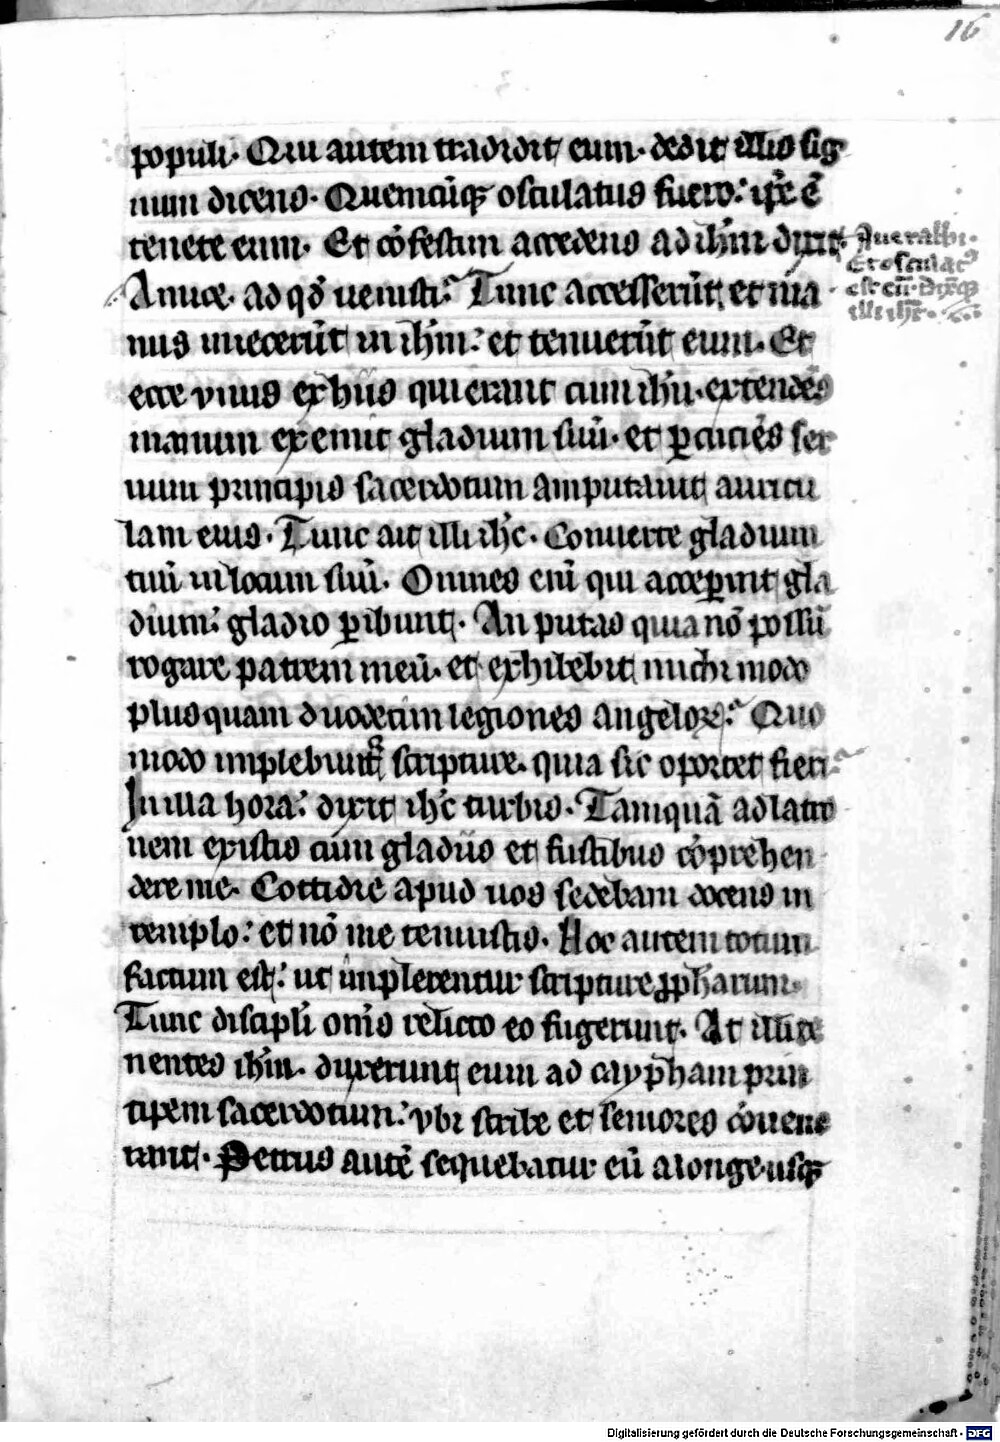 16
populi. Qui autem tradidit eum. dedit illis sig
num dicens. Quemcūq; osculatus fuero: ip̄e ē
tenete eum. Et cōfestim accedens ad ih̄m dixit.
Aue rabbi.
Et osculat⁹
est eū. Dixitq;
illi ih̄c.
Amice. ad qd̄ uenisti? Tunc accesserūt et ma
nus iniecerūt in ih̄m: et tenuerūt eum. Et
ecce vnus ex hijs qui erant cum ih̄u. extendēs
manum exemit gladium suū. et ꝑcuciēs ser
uum principis sacerdotum amputauit auricu
lam eius. Tunc ait illi ih̄c. Conuerte gladium
tuū in locum suū. Omnes eni̅ qui acceꝑint gla
dium: gladio ꝑibunt. An putas quia nō possū
rogare patrem meū. et exhibebit michi modo
plus quam duodecim legiones angeloꝝ? Quo
modo implebunt̃ scripture. quia sic oportet fieri?
In illa hora: dixit ih̄c turbis. Tamquā ad latro
nem existis cum gladijs et fustibus cōprehen
dere me. Cottidie apud uos sedebam docens in
templo: et nō me tenuistis. Hoc autem totum
factum est: ut implerentur scripture ꝓpharum.
Tunc discipli̅ om̄s relicto eo fugerunt. At illi te
nentes ih̄m. duxerunt eum ad caypham prin
cipem sacerdotum: vbi scribe et seniores cōuene
rant. Petrus autē sequebatur eū a longe. usq;
Digitalisierung gefördert durch die Deutsche Forschungsgemeinschaft - DFG